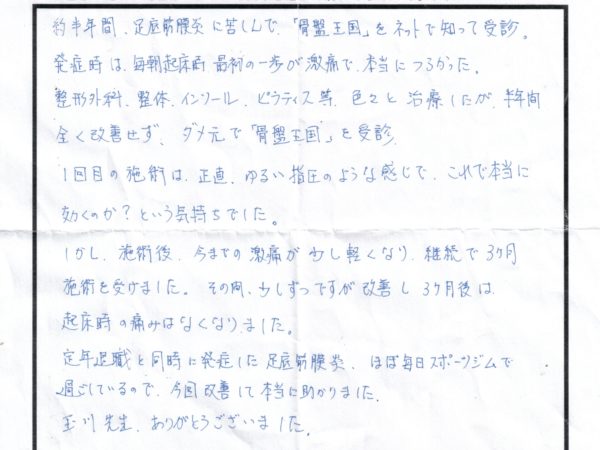 約半年間、足底筋膜炎に苦しんで、「骨盤王国」をネットで知って受診。
発症時は、毎朝起床時最初の一歩が激痛で、本当につらかった。
整形外科、整体、インソール、ピラティス等、色々と治療したが、半年間
全く改善せず、ダメ元で「骨盤王国」を受診。
1回目の施術は、正直、ゆるい指圧のような感じで、これで本当に
効くのか？という気持ちでした。
しかし、施術後、今までの激痛が少し軽くなり、継続で3ヶ月
施術を受けました。その間、少しずつですが改善し3ヶ月後は
起床時の痛みはなくなりました。
定年退職と同時に発症した足底筋膜炎、ほぼ毎日スポーツジムで
過ごしているので、今回改善して本当に助かりました。
玉川先生、ありがとうございました。